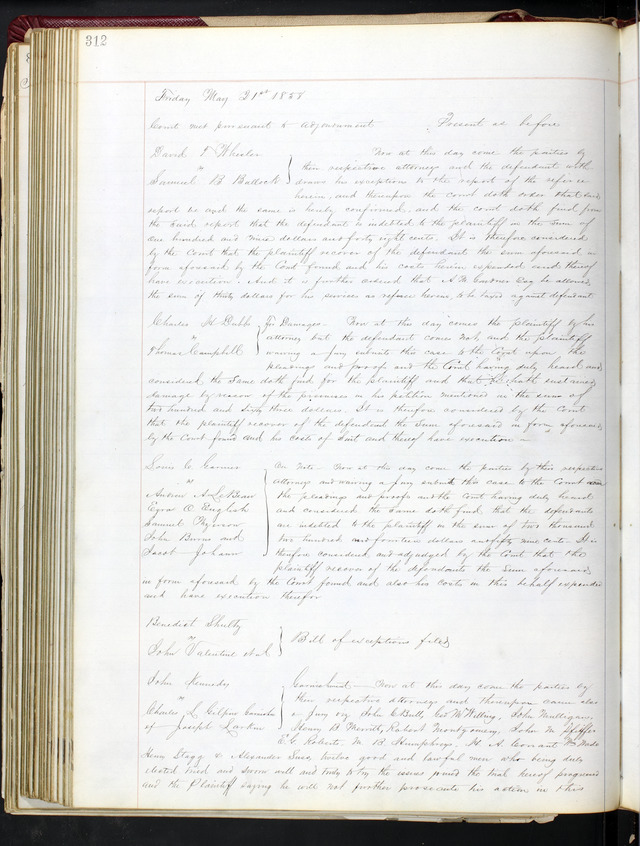 312
Friday May 21st 1858
Court met pursuant to adjournment Present as before
David F Wheeler Now at this day come the parties by
vs their respective attorneys and the defendant with
Samuel B Bullock draws his exception to the report of the referee
herein, and thereupon the court doth order that said
report be and the same is hereby confirmed, and the court doth find from
the said report that the defendant is indebted to the plaintiff in the sum of
One hundred and nine dollars and forty eight cents. It is therefore considered
by the Court that the plaintiff recover of the defendant the sum aforesaid in
form aforesaid by the Court found and his costs herein expended and thereof
have execution. And it is further ordered that A. M. Esq be allowed
the sum of thirty dollars for his services as referee herein, to be taxed against defendant
Charles M Dubbs For Damages. Now at this day comes the plaintiff by his
vs attorney but the defendant comes not, and the plaintiff
Thomas Campbell waiving a jury submits this case to the Court upon the
pleadings and proofs and the Court having duly heard and
considered the same doth find for the plaintiff and that he hath sustained
damage by reason of the premises in his petition mentioned in the sum of
two hundred and sixty three dollars. It is therefore considered by the Court
that the plaintiff recover of the defendant the sum aforesaid in form aforesaid
by the Court found and his costs of suit and thereof have execution
Louis C Garnier On Note. Now at this day come the parties by their respective
vs attorneys and waiving a jury submit this case to the Court upon
Andrew A LeBeau the pleadings and proofs and the Court having duly heard
Ezra O English and considered the same doth find that the defendants
Samuel are indebted to the plaintiff in the sum of two thousand
John Burns and two hundred and fourteen dollars and fifty nine cents. It is
Jacob Johann therefore considered and adjudged by the Court that the
plaintiff recover of the defendants the sum aforesaid
in form aforesaid by the Court found and also his costs in this behalf expended
and have execution therefor
Benedict Shultz
vs Bill of exceptions filed
John Valentine et al
John Kennedy Garnishment Now at this day come the parties by
vs their respective attorneys and thereupon came also
Charles L Gilpin Garnishee a jury viz John Geo John Mulligan,
of Joseph Larkin Henry B Merrill, Robert Montgomery, John M Pfeiffer
E G Roberts M B Humphreys, H A Wm Wade
Henry Stagg & Alexander twelve good and lawful men who being duly
elected tried and sworn well and truly to try the issues joined the trial hereof progressed
and the Plaintiff saying he will not further prosecute his action in this